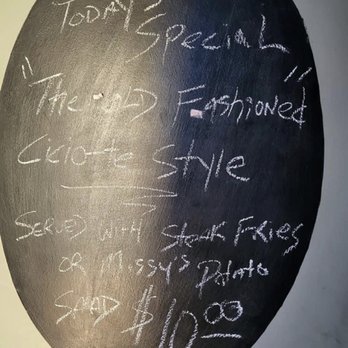 Today's
Special
"The OLD Fashioned"
Style
Served with Steak Fries
or Missy's Potato
Salad $10.00